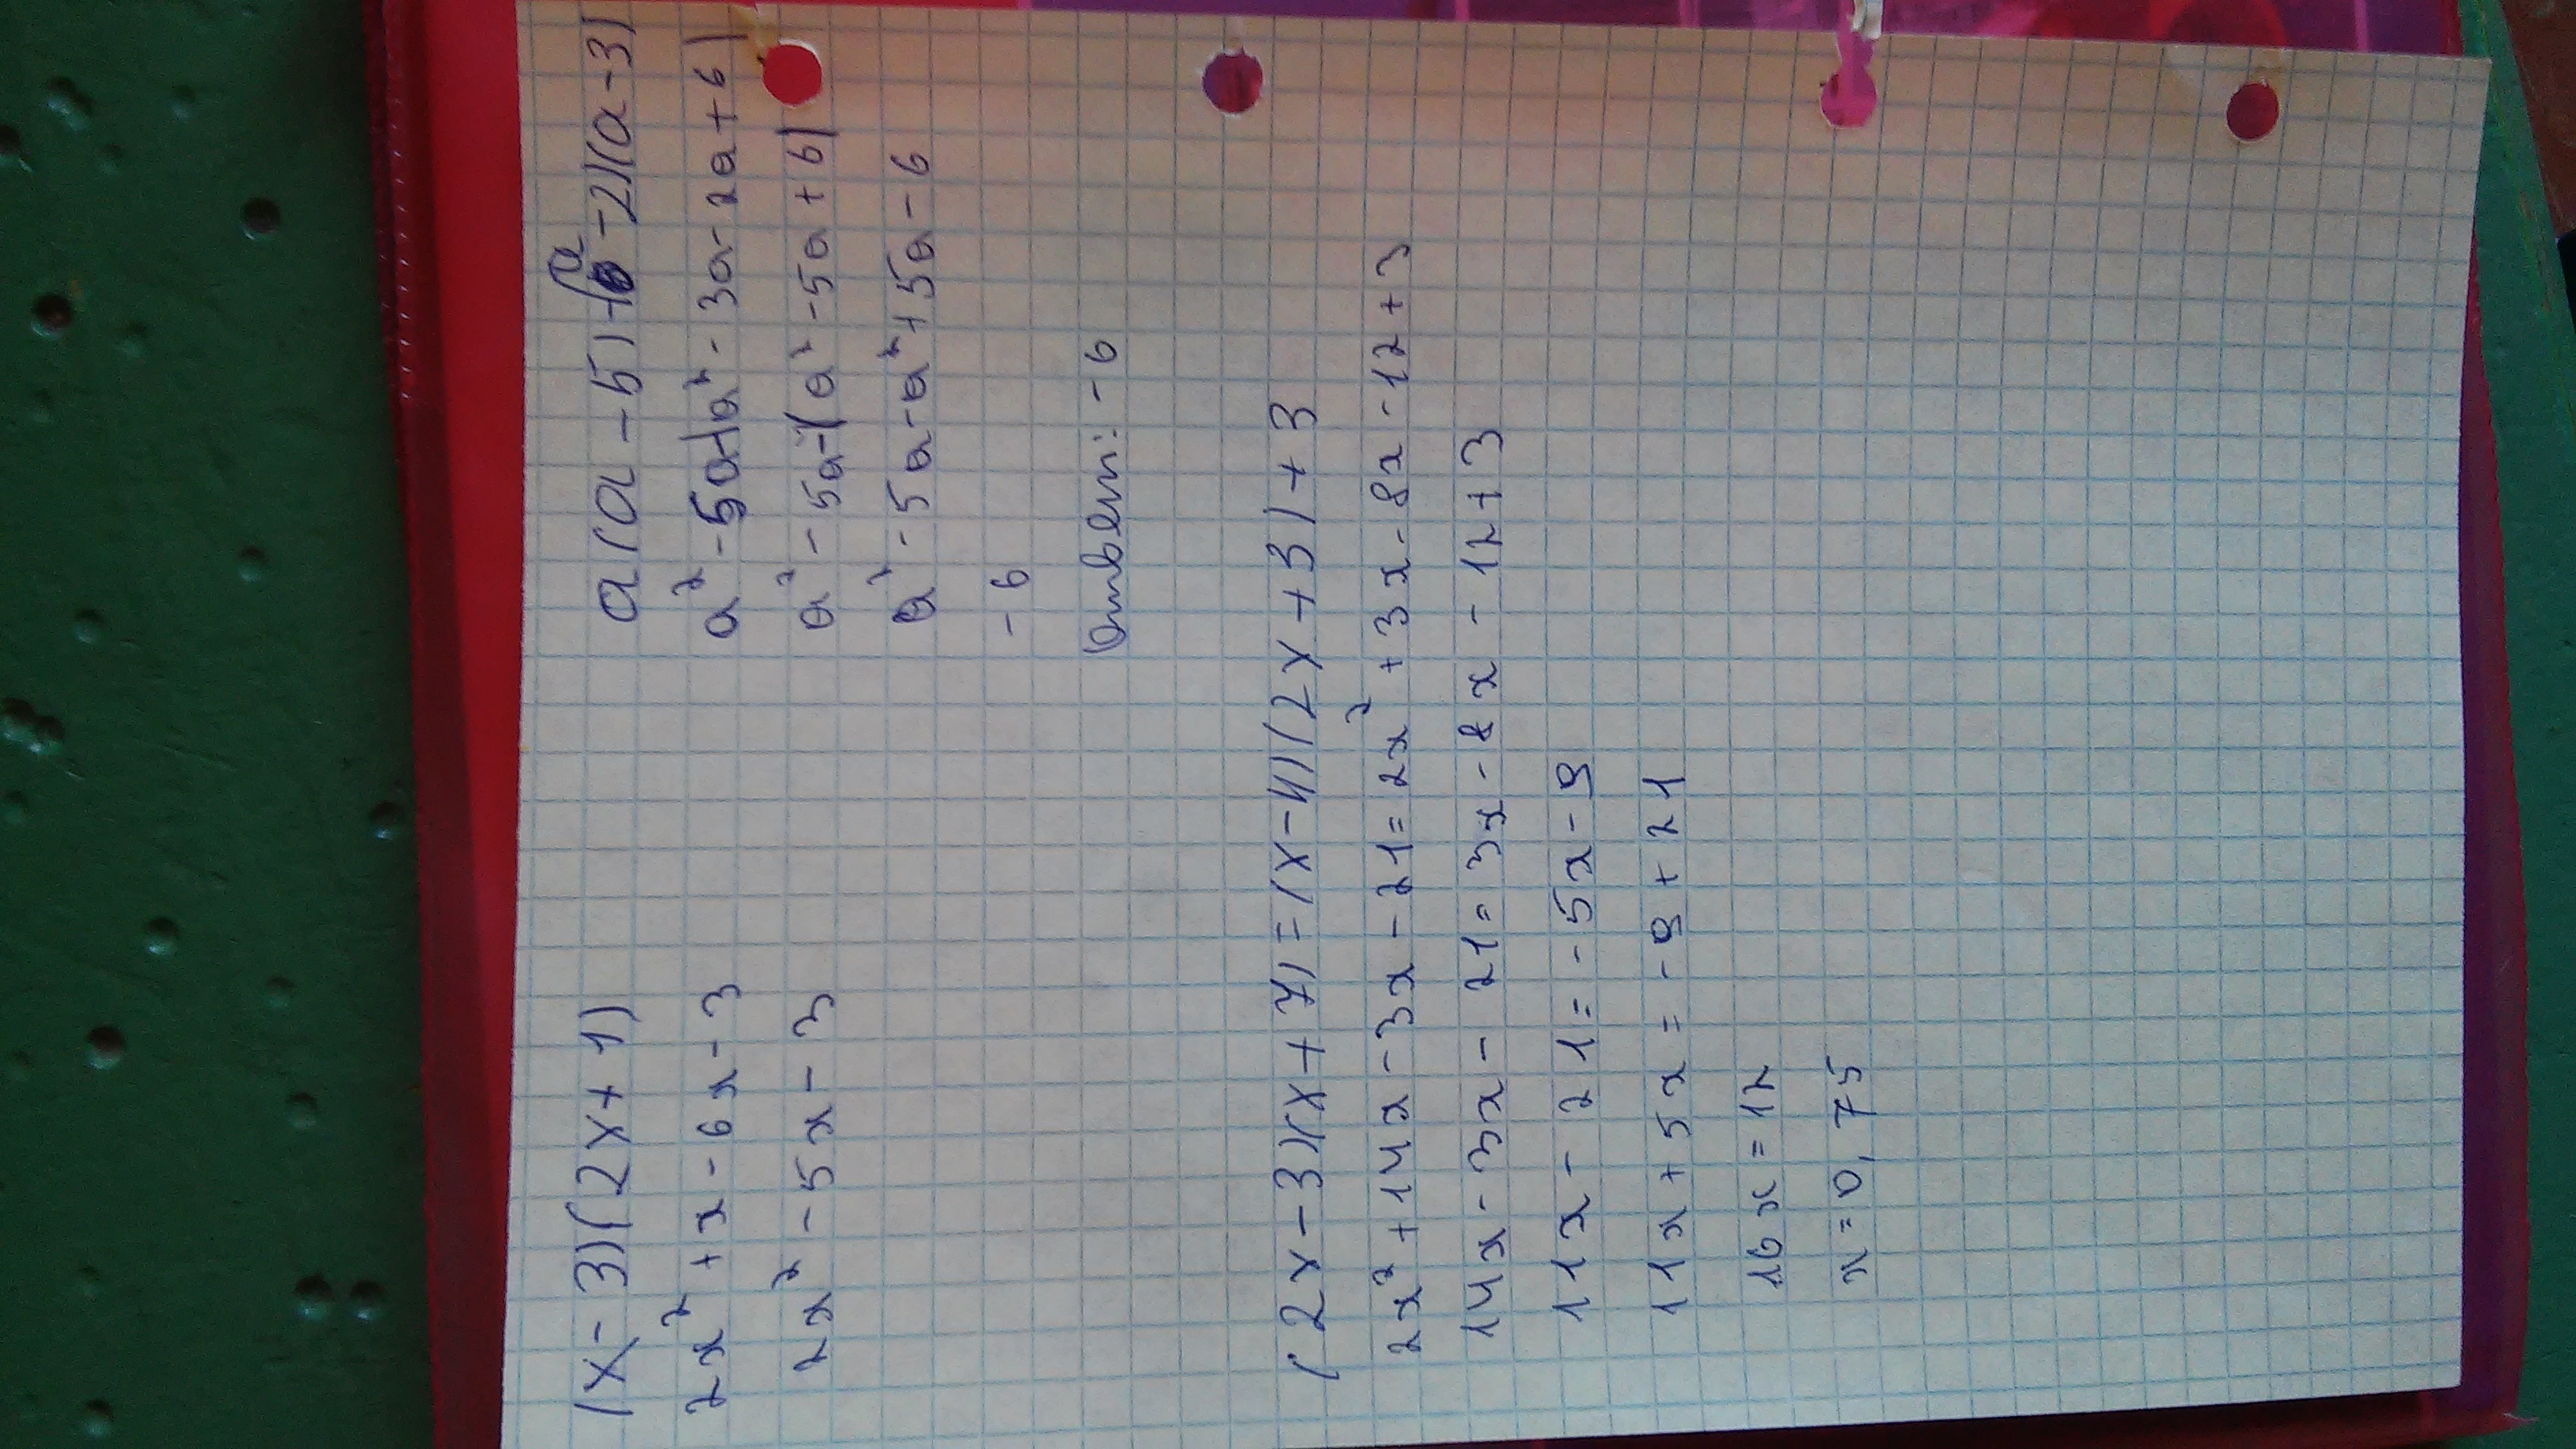 (x-3)(2x+1)
2x²+x-6x-3
2x²-5x-3
a(a-5)-(a-2)(a-3)
a²-5a-(a²-3a-2a+6)
a²-5a-(a²-5a+6)
a²-5a-a²+5a-6
-6
Ответ: -6
(2x-3)(x+7)=(x-4)(2x+3)+3
2x²+14x-3x-21=2x²+3x-8x-12+3
14x-3x-21=3x-8x-12+3
11x-21=-5x-9
11x+5x=-9+21
16x=12
x=0,75